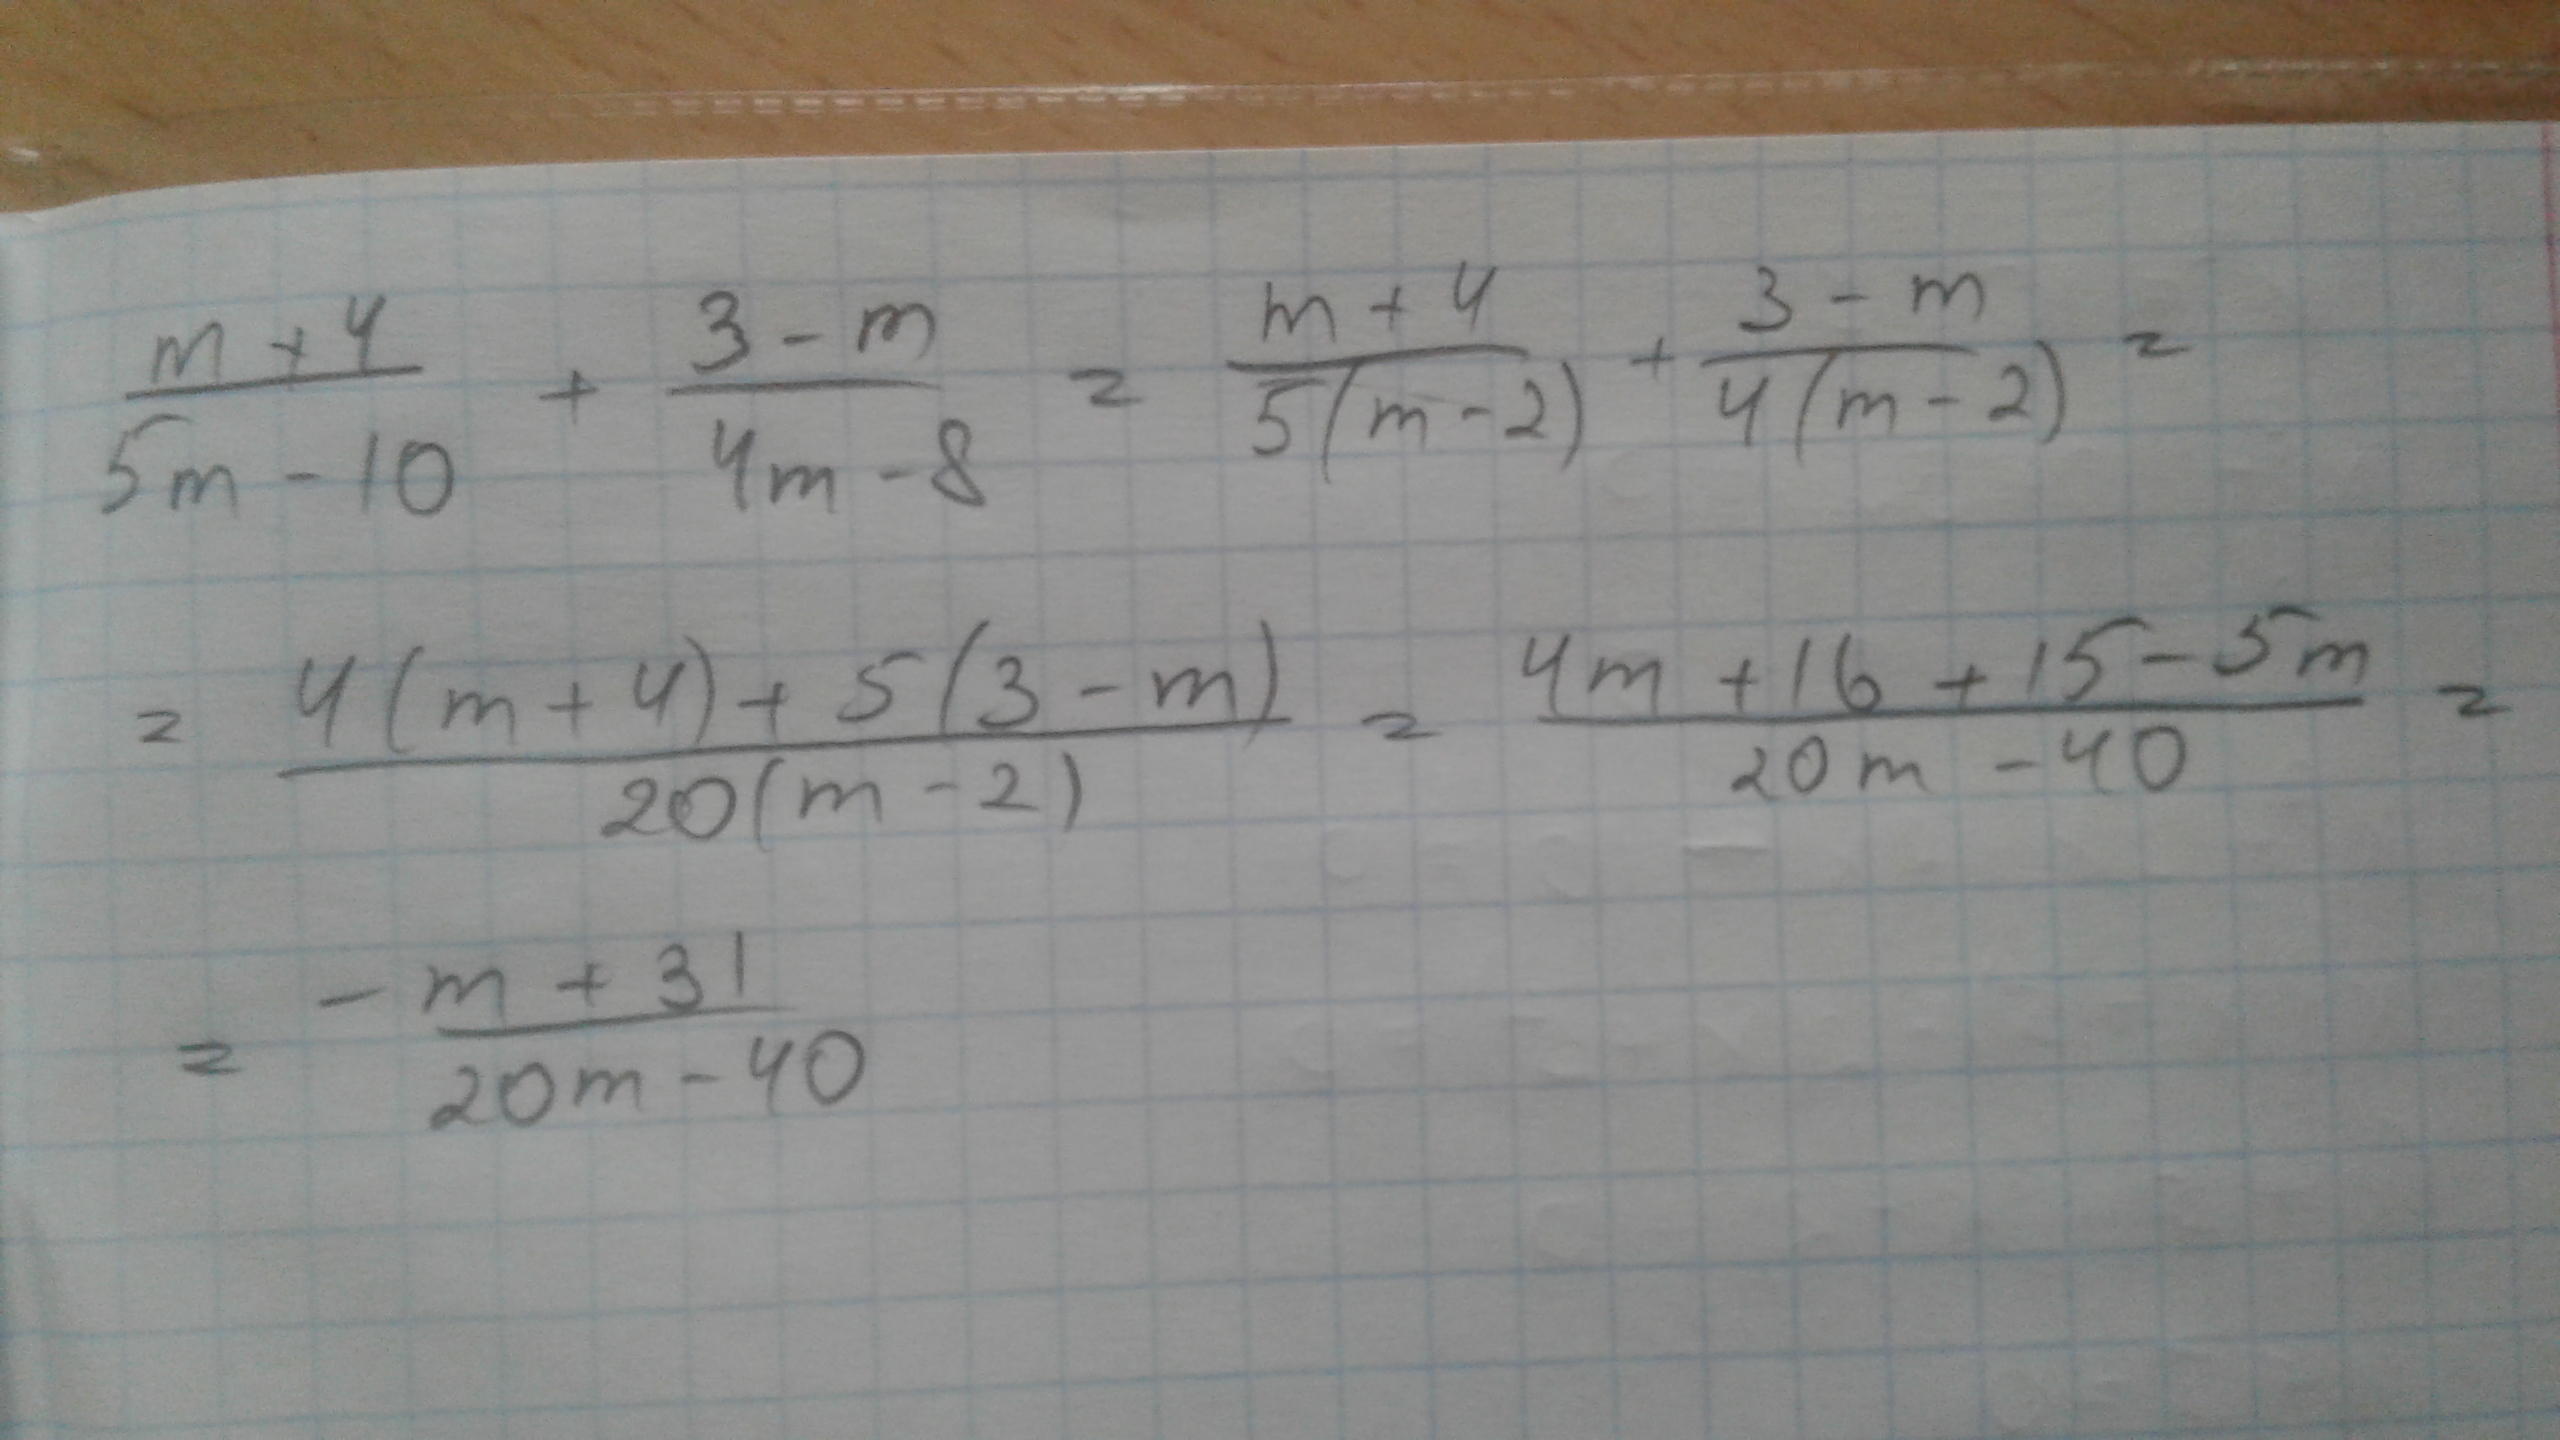 (m + 4)/(5m - 10) + (3 - m)/(4m - 8) = (m + 4)/(5(m - 2)) + (3 - m)/(4(m - 2)) =
= (4(m + 4) + 5(3 - m))/(20(m - 2)) = (4m + 16 + 15 - 5m)/(20m - 40) =
= (-m + 31)/(20m - 40)